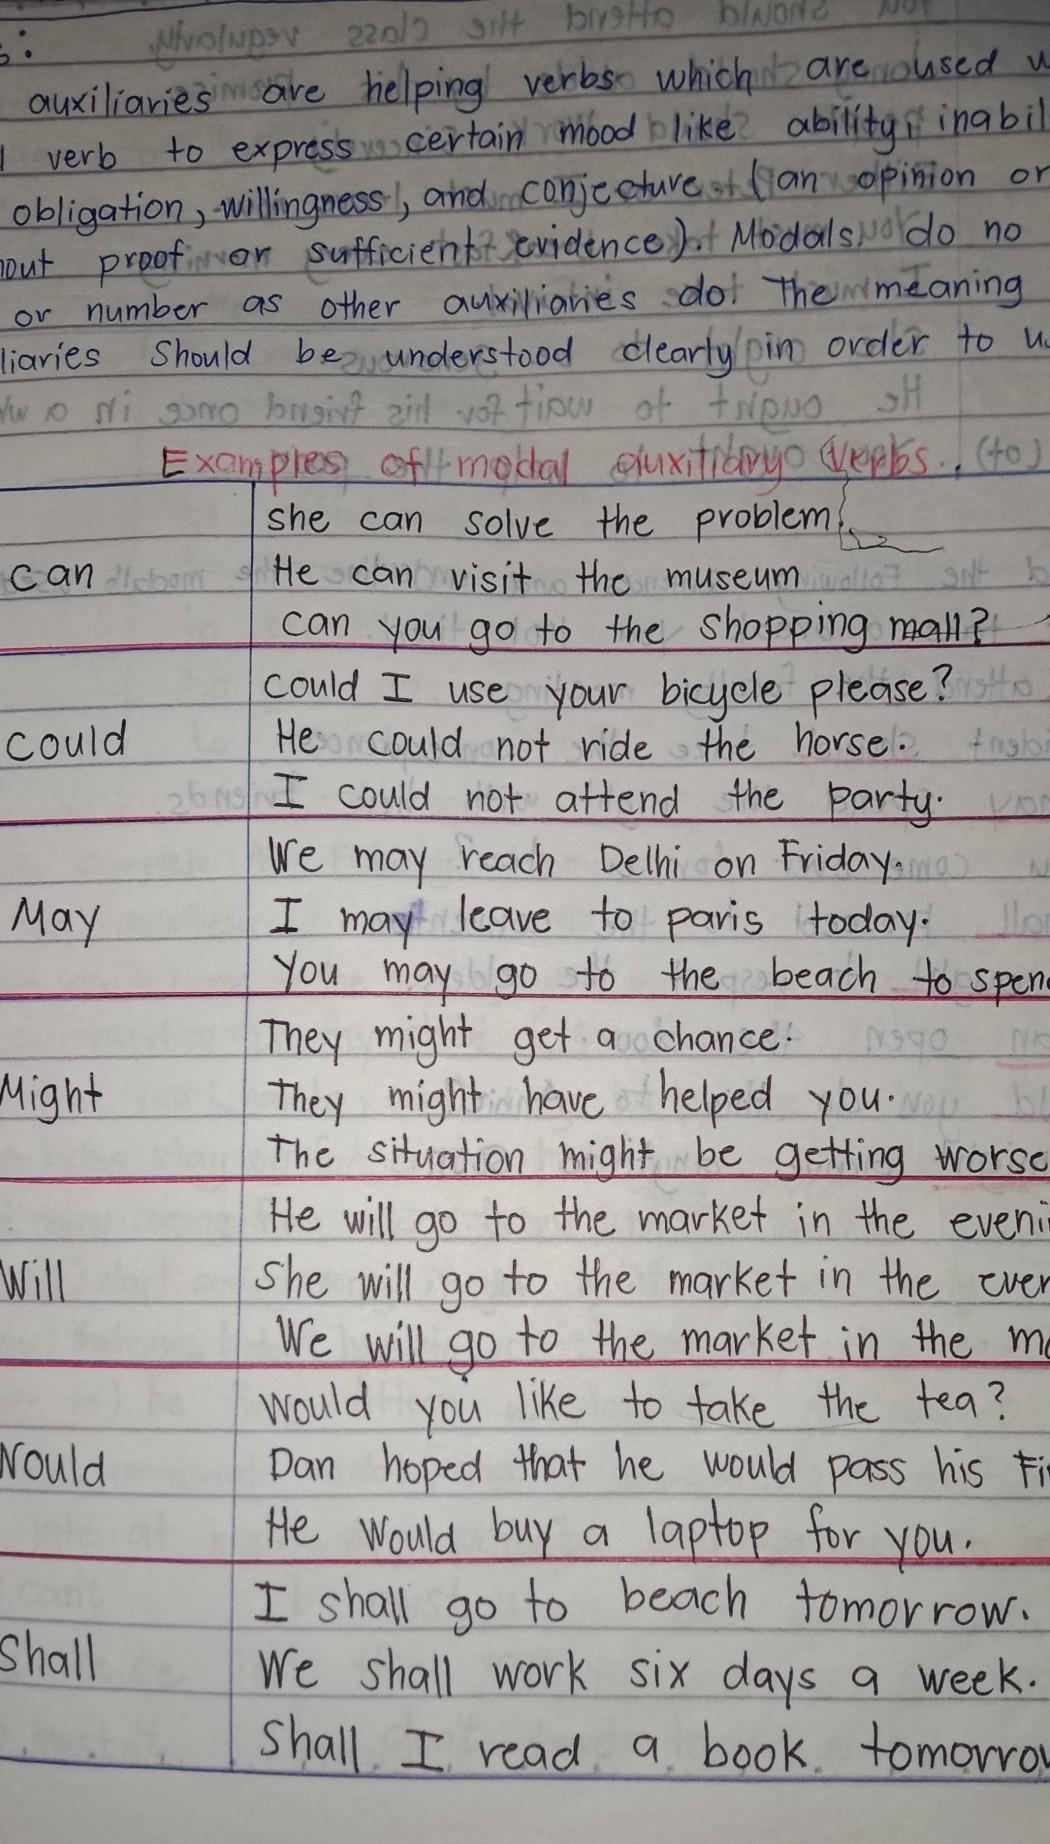 auxiliaries are helping verbs which are used
verb to express certain mood like ability, inabil
obligation, willingness, and conjecture (an opinion or
out proof or sufficient evidence). Modals do no
or number as other auxiliaries do. The meaning
liaries Should be understood clearly in order to
Examples of modal auxiliary verbs.
she can solve the problem.
can
He can visit the museum
can you go to the shopping mall?
could I use your bicycle please?
could
He could not ride the horse.
I could not attend the party.
We may reach Delhi on Friday.
May
I may leave to paris today.
You may go to the beach to spen
They might get a chance.
Might
They might have helped you.
The situation might be getting worse
He will go to the market in the eveni
Will
She will go to the market in the even
We will go to the market in the mo
would you like to take the tea?
Would
Dan hoped that he would pass his Fi
He would buy a laptop for you.
I shall go to beach tomorrow.
Shall
We shall work six days a week.
Shall I read a book tomorrow